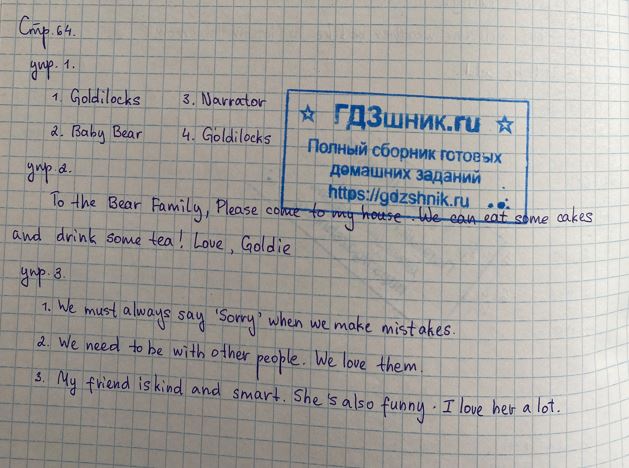 Стр. 64.
упр. 1.
1. Goldilocks 3. Narrator
2. Baby Bear 4. Goldilocks
☆ ГДЗшник.ru ☆
Полный сборник готовых
домашних заданий
https://gdzshnik.ru
упр. 2.
To the Bear Family, Please come to my house. We can eat some cakes
and drink some tea! Love, Goldie
упр. 3.
1. We must always say 'Sorry' when we make mistakes.
2. We need to be with other people. We love them.
3. My friend is kind and smart. She's also funny. I love her a lot.